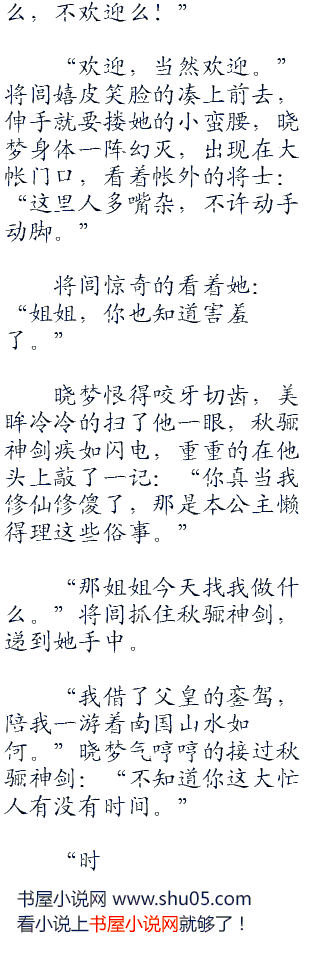 么，不欢迎么！”
“欢迎，当然欢迎。”
将闾嬉皮笑脸的凑上前去，
伸手就要搂她的小蛮腰，晓
梦身体一阵幻灭，出现在大
帐门口，看着帐外的将士：
“这里人多嘴杂，不许动手
动脚。”
将闾惊奇的看着她：
“姐姐，你也知道害羞
了。”
晓梦恨得咬牙切齿，美
眸冷冷的扫了他一眼，秋骊
神剑疾如闪电，重重的在他
头上敲了一记：“你真当我
修仙修傻了，那是本公主懒
得理这些俗事。”
“那姐姐今天找我做什
么。”将闾抓住秋骊神剑，
递到她手中。
“我借了父皇的銮驾，
陪我一游着南国山水如
何。”晓梦气哼哼的接过秋
骊神剑：“不知道你这大忙
人有没有时间。”
“时
书屋小说网 www.shu05.com
看小说上书屋小说网就够了！